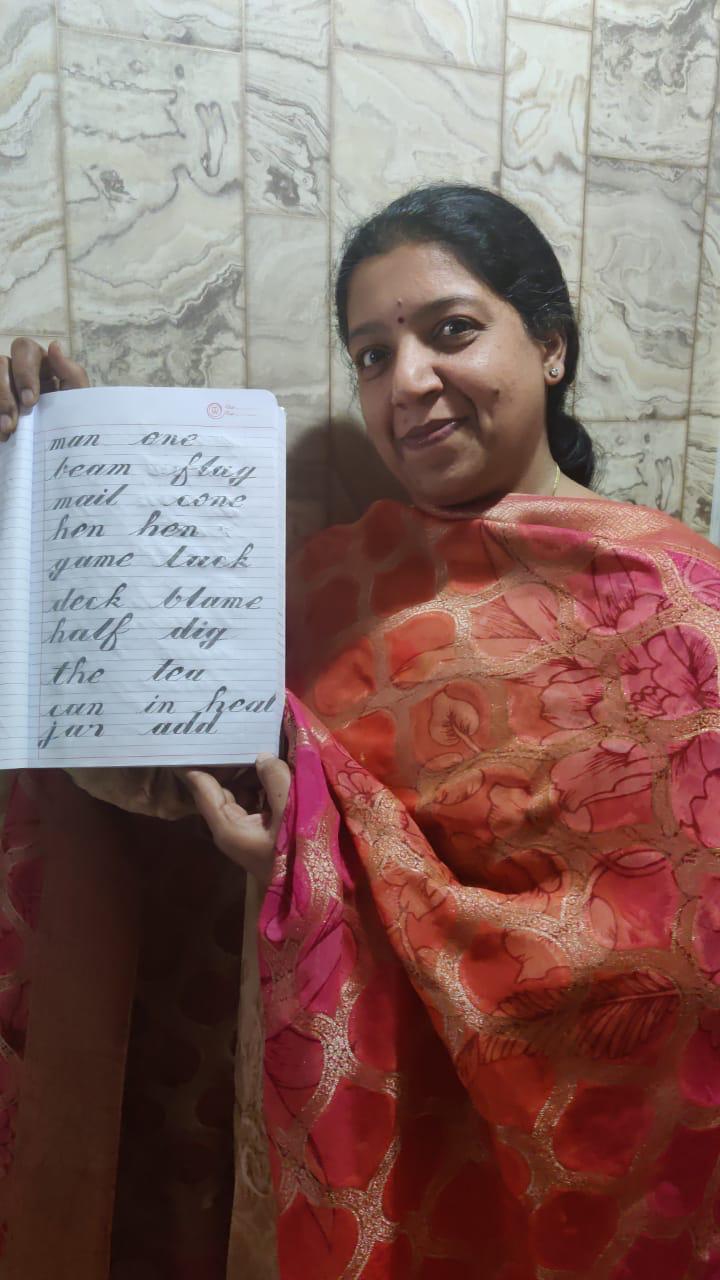 man one
beam flag
mail cone
hen hen
game luck
deck blame
half dig
the tea
can in heat
jar add